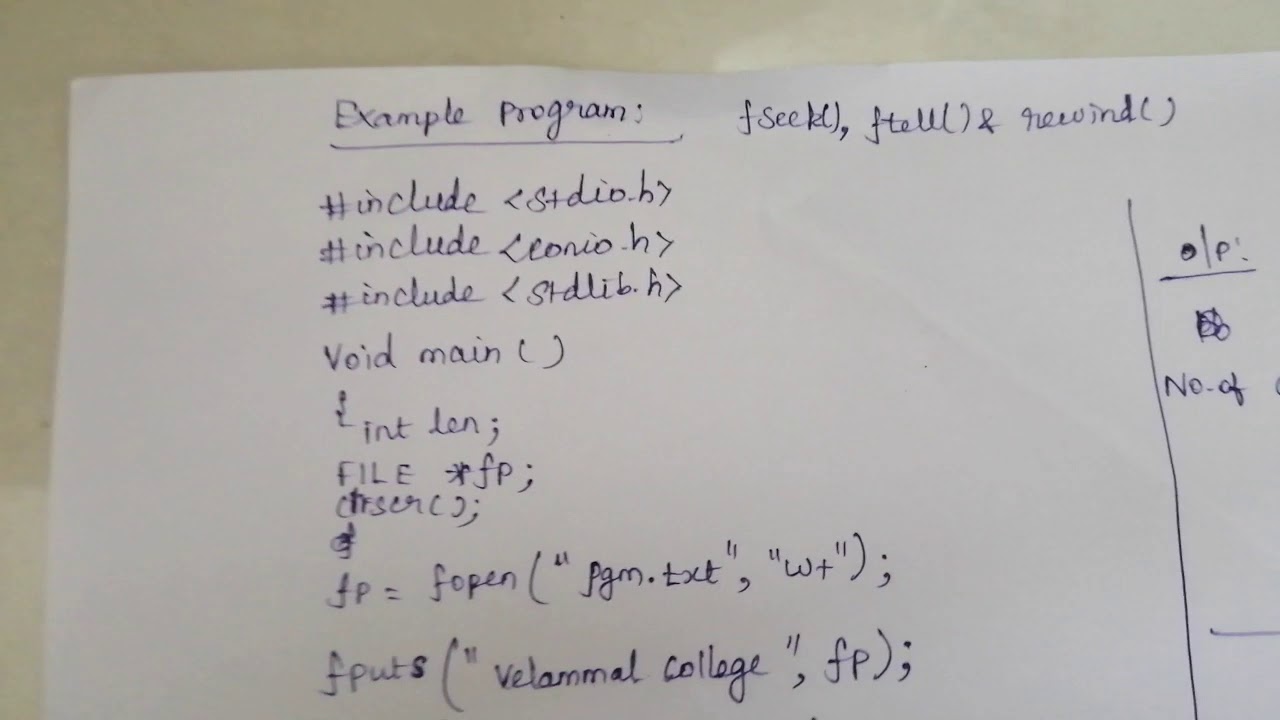 Example Program: fseek(), ftell() & rewind()
#include <stdio.h>
#include <conio.h>
#include <stdlib.h>
Void main ( )
{ int len;
FILE *fp;
clrscr();
fp = fopen(" pgm.txt", "w+");
fputs (" velammal college ", fp);
o/p:
No. of